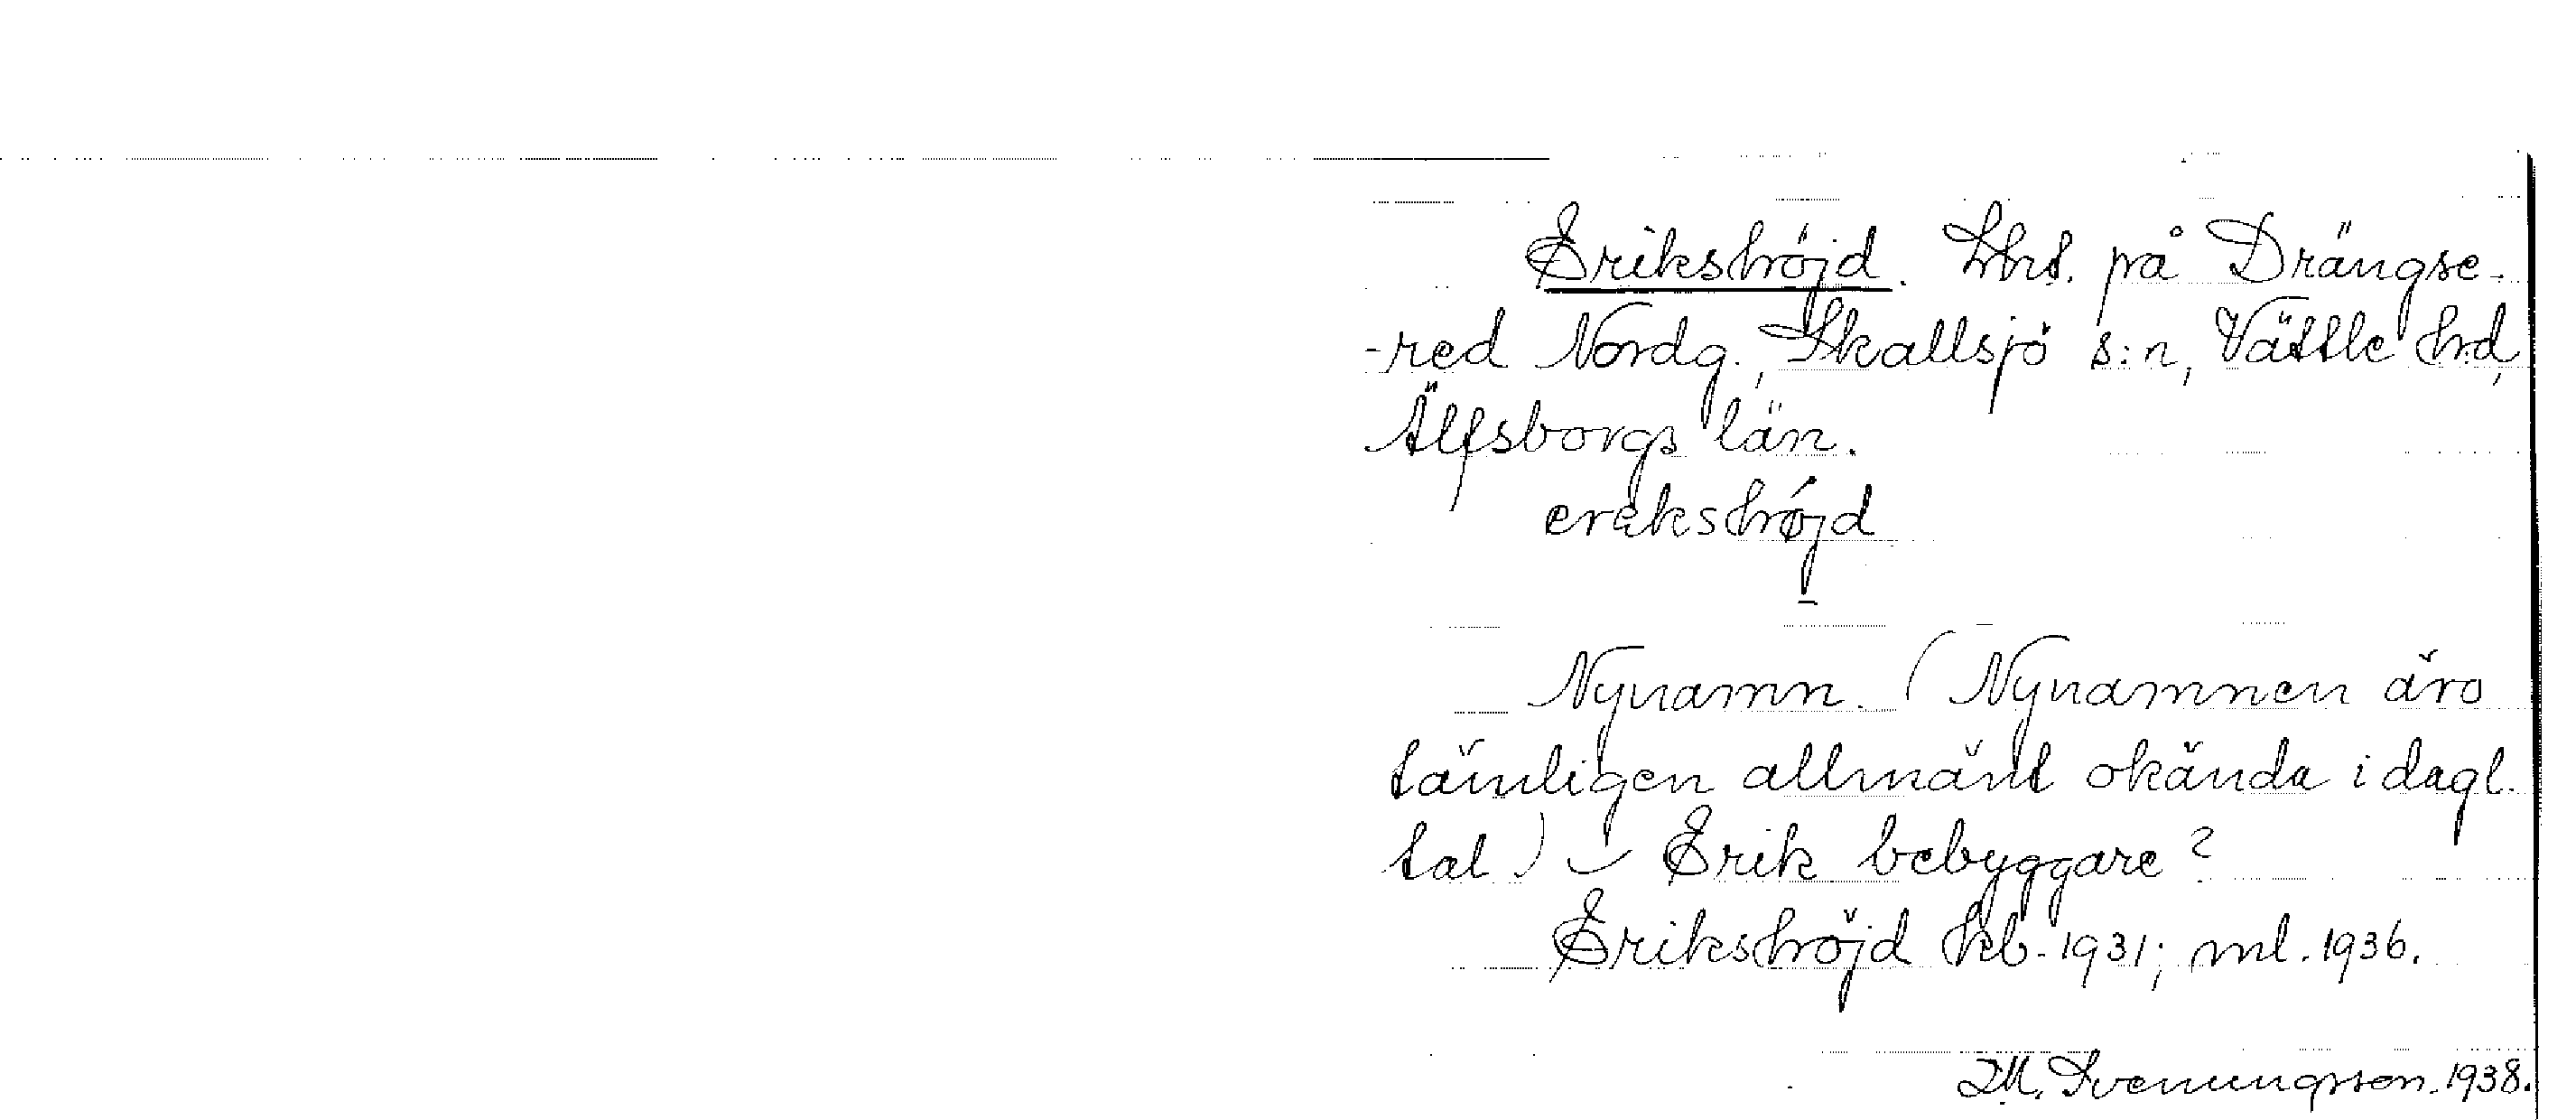 Erikshöjd. Lht. på Drängse-
-red Nordg., Skallsjö s:n, Vättle hd,
Älfsborgs län.
erekshöjd
Nynamn. (Nynamnen äro
tämligen allmänt okända i dagl.
tal) Erik bebyggare?
Erikshöjd kb. 1931; ml. 1936.
M. Svenungsson. 1938.